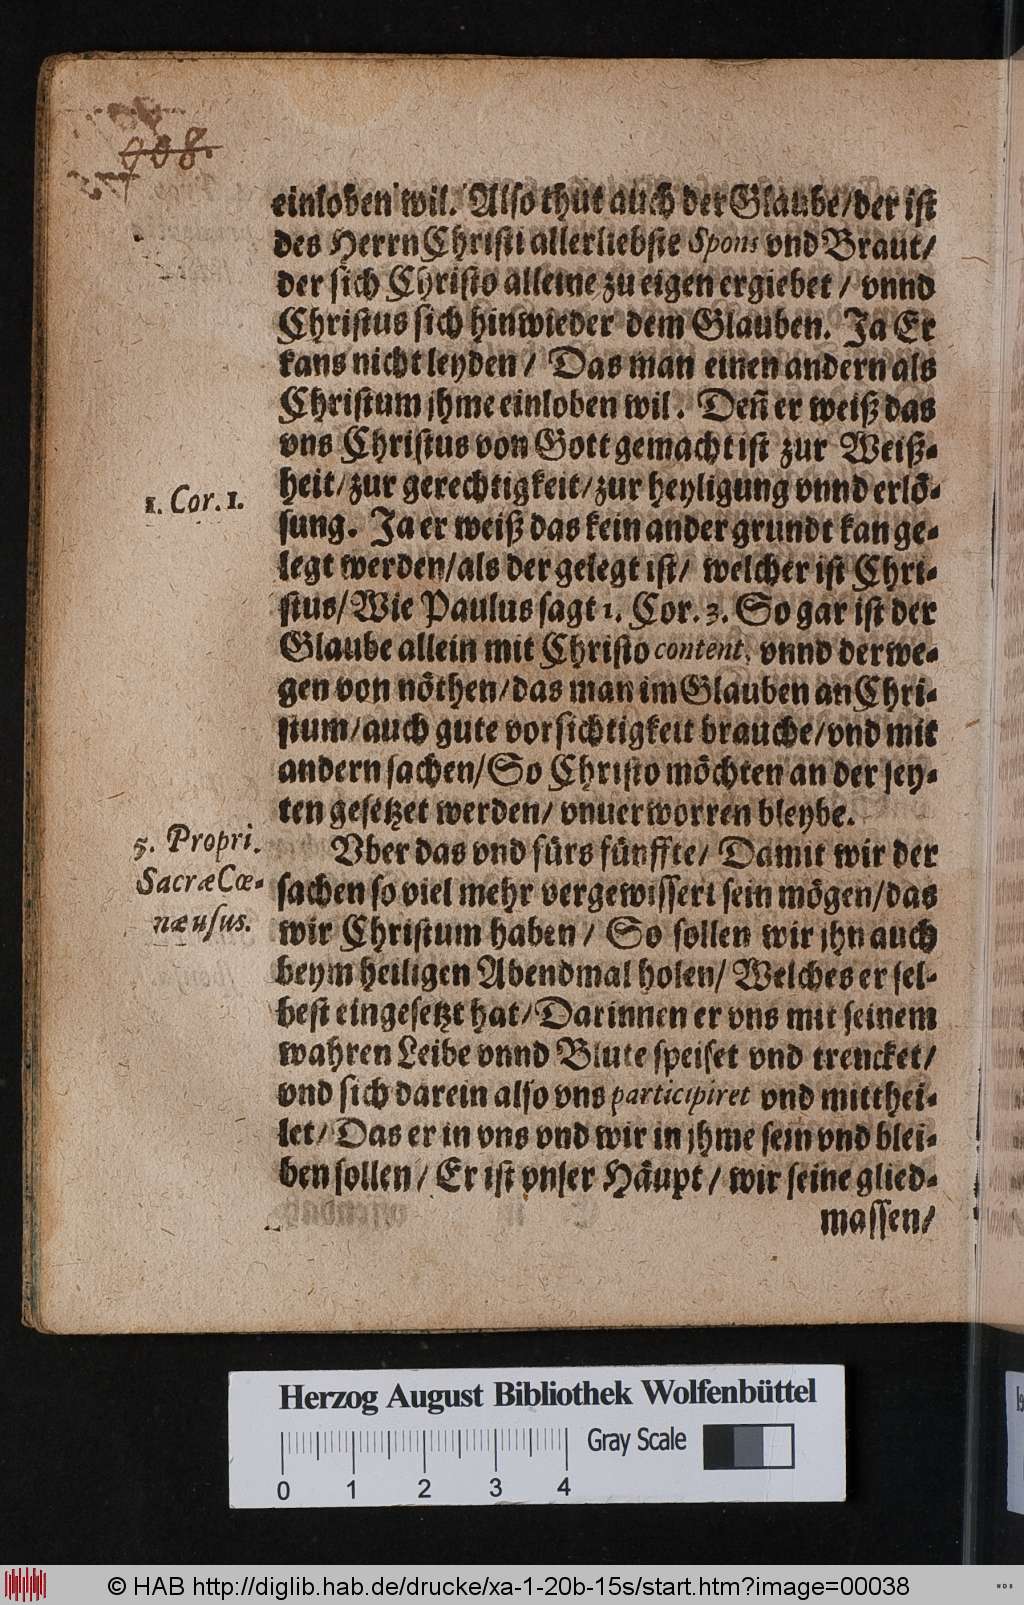 908.
einloben wil. Also thut auch der Glaube/der ist
des Herrn Christi allerliebste Spons vnd Braut/
der sich Christo alleine zu eigen ergiebet / vnnd
Christus sich hinwieder dem Glauben. Ja Er
kans nicht leyden / Das man einen andern als
Christum jhme einloben wil. Deñ er weiß das
vns Christus von Gott gemacht ist zur Weiß-
heit/zur gerechtigkeit/zur heyligung vnnd erlö-
1. Cor. 1.
sung. Ja er weiß das kein ander grundt kan ge-
legt werden/als der gelegt ist/ welcher ist Chri-
stus/Wie Paulus sagt 1. Cor. 3. So gar ist der
Glaube allein mit Christo content, vnnd derwe-
gen von nöthen/das man im Glauben an Chri-
stum/auch gute vorsichtigkeit brauche/vnd mit
andern sachen/So Christo möchten an der sey-
ten gesetzet werden/ vnuerworren bleybe.
5. Propri.
Sacræ Cœ-
næ usus.
Vber das vnd fürs fünffte/ Damit wir der
sachen so viel mehr vergewissert sein mögen/das
wir Christum haben / So sollen wir jhn auch
beym heiligen Abendmal holen/ Welches er sel-
best eingesetzt hat/Darinnen er vns mit seinem
wahren Leibe vnnd Blute speiset vnd trencket/
vnd sich darein also vns participiret vnd mitthei-
let/ Das er in vns vnd wir in jhme sein vnd blei-
ben sollen/ Er ist vnser Häupt / wir seine glied-
massen/
Herzog August Bibliothek Wolfenbüttel
Gray Scale
0 1 2 3 4
© HAB http://diglib.hab.de/drucke/xa-1-20b-15s/start.htm?image=00038